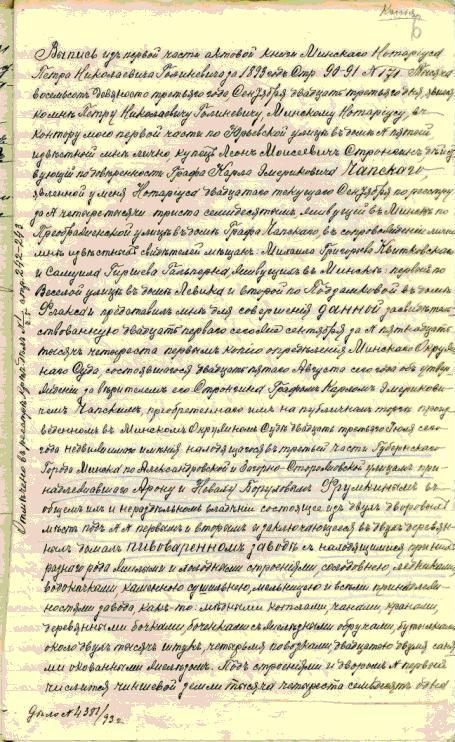 Копія
6
Выпись изъ первой части актовой книги Минскаго Нотаріуса
Петра Николаевича за 1893 годъ Стр. 90-91 № 171. Тысяча
восемьсотъ девяносто третьяго года Сентября двадцать третьяго дня, явился
ко мнѣ Петру Николаевичу Минскому Нотаріусу, въ
контору мою первой части по Юрьевской улицѣ въ домѣ № пятый
извѣстный мнѣ лично купецъ Леонъ Моисеевичъ дѣйст
вующій по довѣренности Графа Карла Эмериковича Чапскаго
явленной у меня Нотаріуса двадцатаго текущаго Сентября по реестру
за № четыре тысячи триста семидесятымъ живущій въ Минскѣ по
Преображенской улицѣ въ домѣ Графа Чапскаго въ сопровожденіи лично
мнѣ извѣстныхъ свидѣтелей мѣщанъ: Михаила Григорьева Квятковскаго
и Самуила Гиршева Гальперна живущихъ въ Минскѣ: первой по
Веселой улицѣ въ домѣ Левика и второй по въ домѣ
Флакса и представилъ мнѣ для совершенія данной засвидѣтель
ствованную двадцать перваго сего Сентября за № пятнадцать
тысячъ четыреста первымъ копію опредѣленія Минскаго Окруж
наго Суда, состоявшагося двадцать пятаго Августа сего года объ утвер
жденіи за вѣрителемъ его Графомъ Карломъ Эмерикови
чемъ Чапскимъ, пріобрѣтеннаго имъ на публичномъ торгѣ произ
веденномъ въ Минскомъ Окружномъ Судѣ двадцать третьяго Іюля сего
года недвижимаго имѣнія находящагося въ третьей части Губернскаго
Города Минска по Александровской и улицамъ при
надлежавшаго Арону и Неваху Боруховымъ Фрумкинымъ въ
общемъ ихъ и нераздѣльномъ владѣніи состоящее изъ двухъ дворовыхъ
мѣстъ подъ №№ первымъ и вторымъ и заключающееся въ двухъ деревян
ныхъ домахъ пивоваренномъ заводѣ съ находящимися при нихъ
разнаго рода жилыми и нежилыми строеніями, солодовнею, ледниками,
водокачками каменною сушильнею, мельницею и всѣми принадлеж
ностями завода, какъ то: мѣдными котлами, чанами, кранами,
деревянными бочками, боченками съ желѣзными обручами, бутылками
около двухъ тысячъ штукъ, четырьмя повозками, двадцатью двумя саня
ми окованными желѣзомъ. Подъ строеніями и дворомъ № первой
числится чиншевой земли тысяча четыреста семьдесятъ одна
Дѣло № 4381/93 г.
Отмѣчено въ реестрѣ стр. 212-213